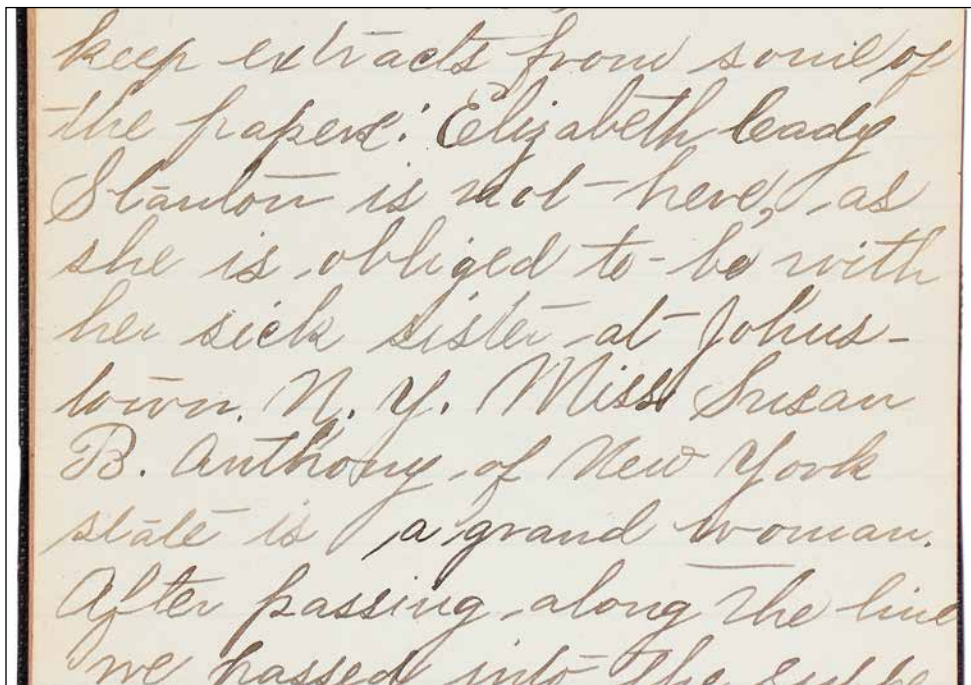 keep extracts from some of
the papers: Elizabeth Cady
Stanton is not here, as
she is obliged to be with
her sick sister at Johns-
town. N. Y. Miss Susan
B. Anthony of New York
state is a grand woman.
After passing along the line
we passed into the